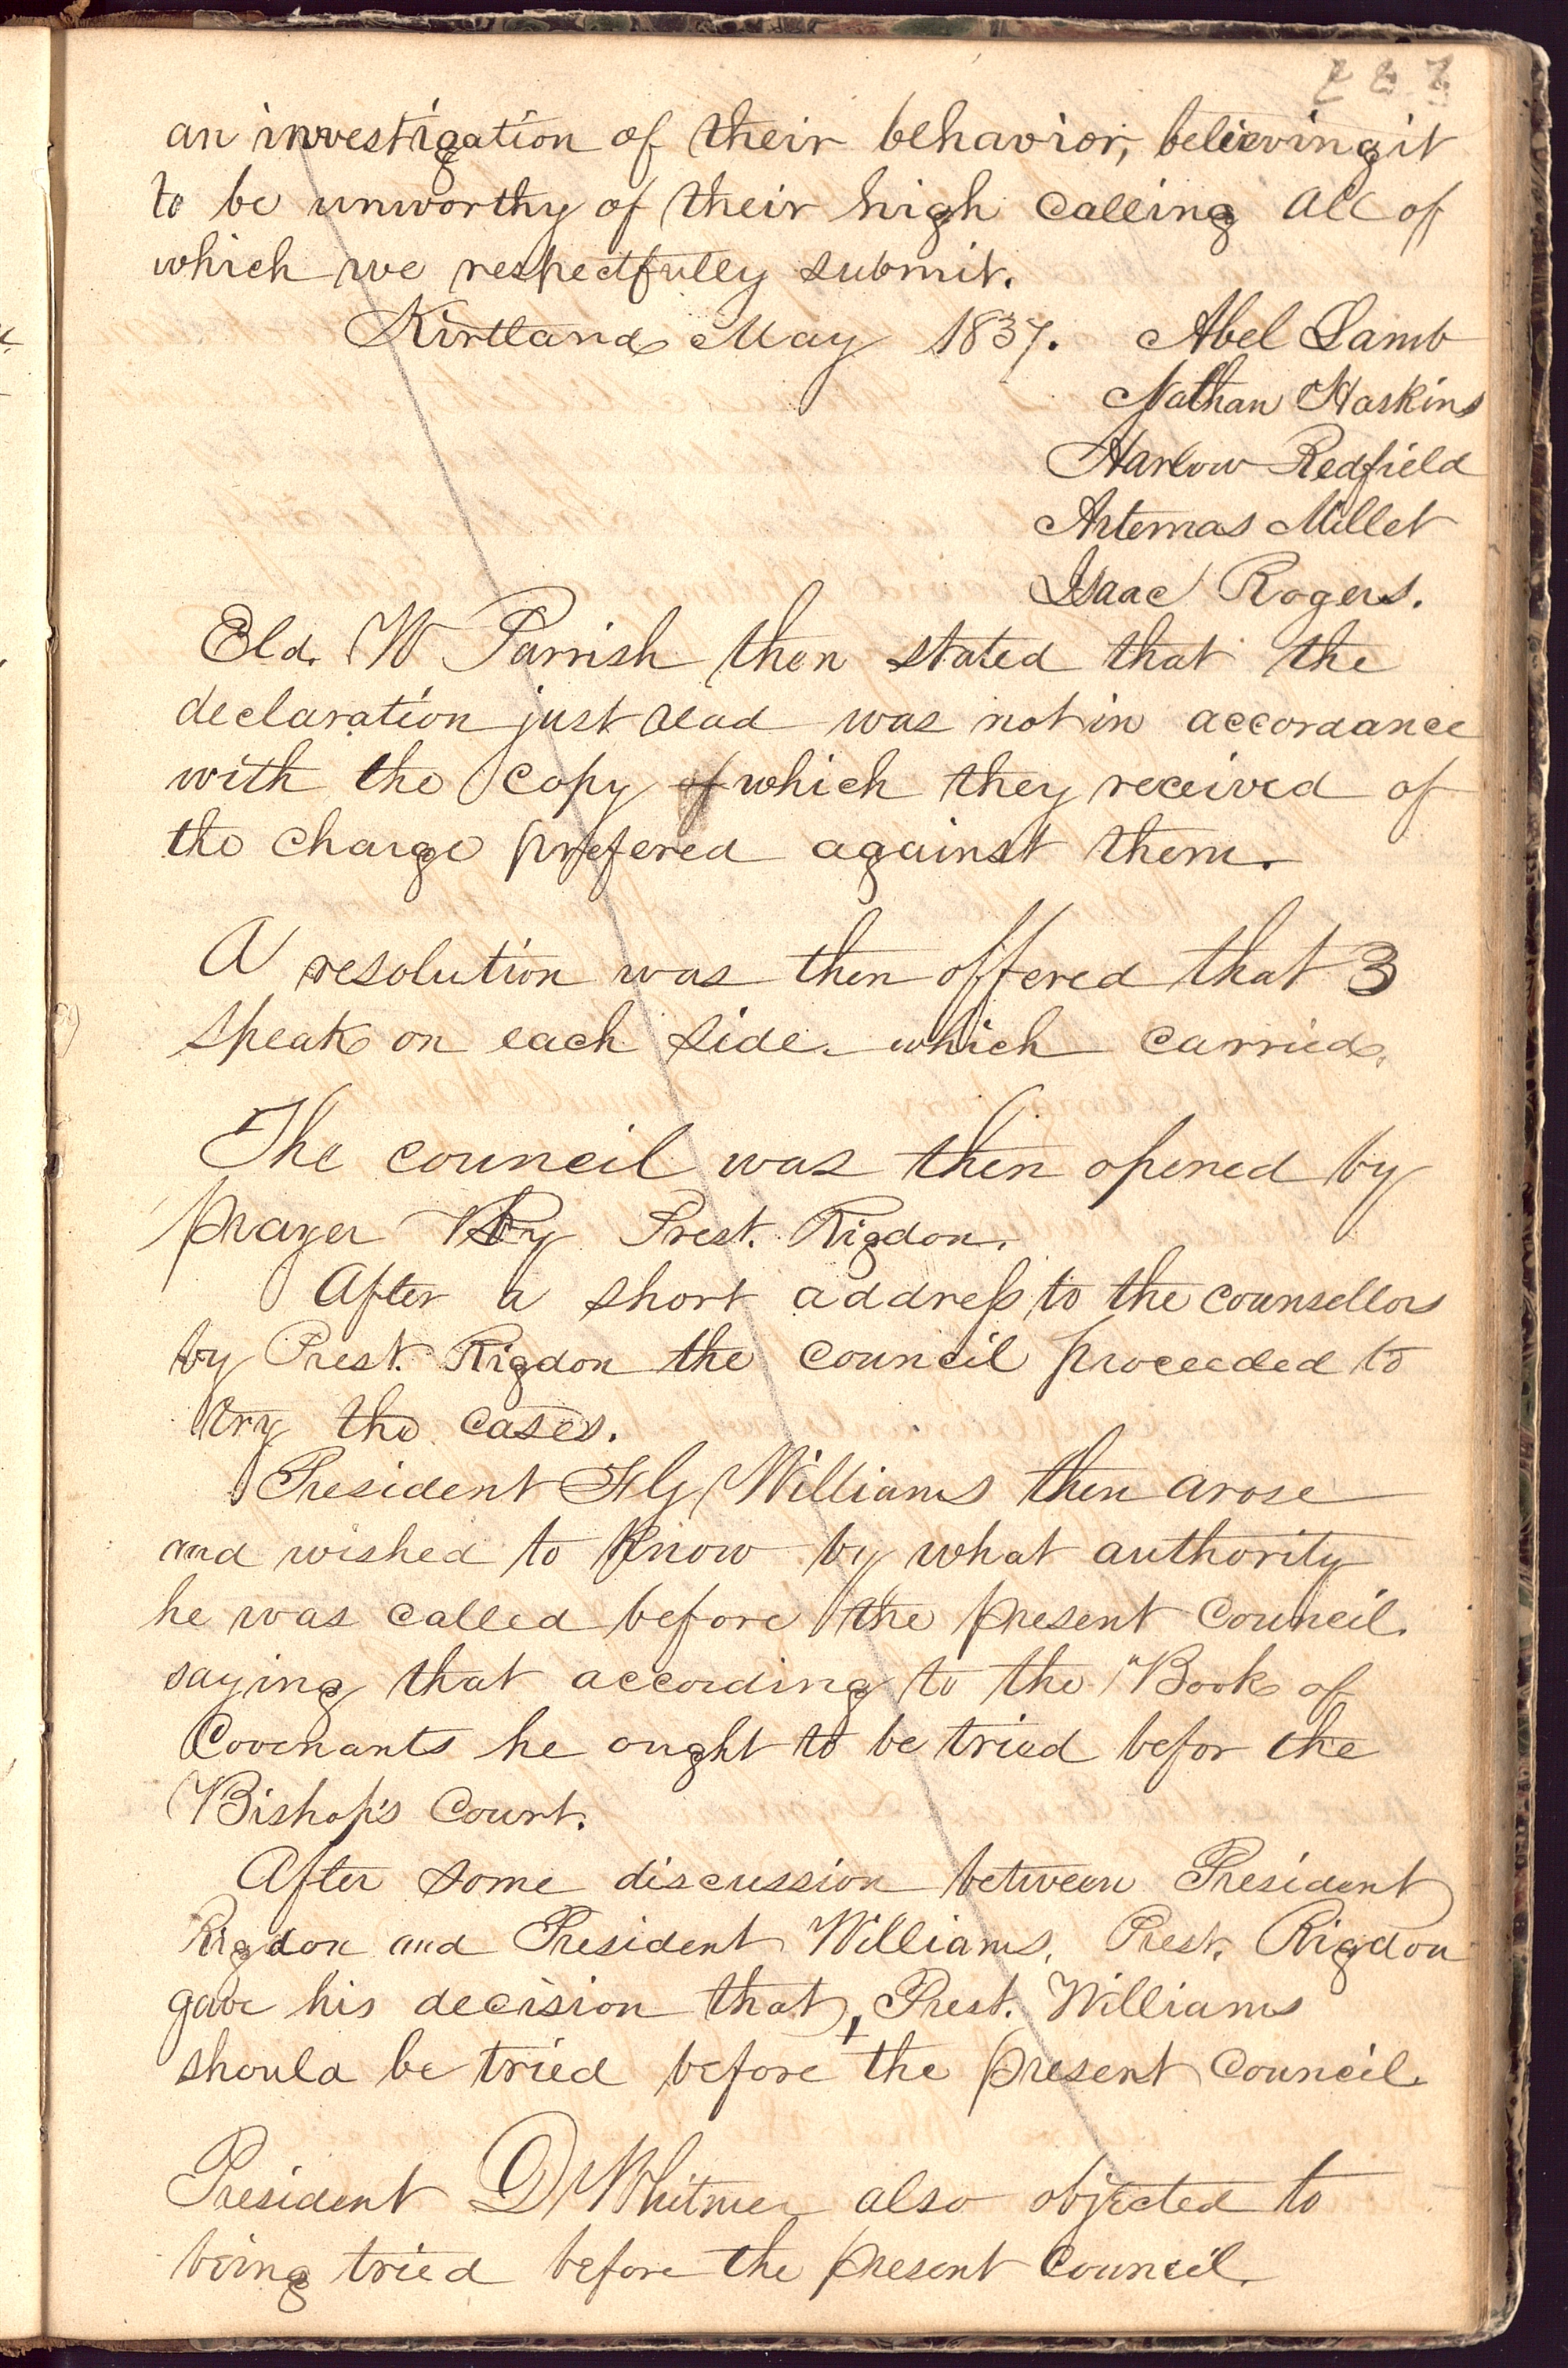 227
an investigation of their behavior, believing it
to be unworthy of their high calling all of
which we respectfully submit.
Kirtland May 1837. Abel Lamb
Nathan Haskins
Harlow Redfield
Artemas Millet
Isaac Rogers.
Eld. W Parrish then stated that the
declaration just read was not in accordance
with the copy of which they received of
the charge prefered against them.
A resolution was then offered that 3
speak on each side. which carried.
The council was then opened by
prayer By Prest. Rigdon.
After a short address to the counsellors
by Prest. Rigdon the council proceeded to
try the cases.
President F G Williams then arose
and wished to know by what authority
he was called before the present Council.
saying that according to the Book of
Covenants he ought to be tried befor the
Bishop's Court.
After some discussion between President
Rigdon and President Williams, Prest. Rigdon
gave his decision that, Prest. Williams
should be tried before the present Council.
President D Whitmer also objected to
being tried before the present Council.